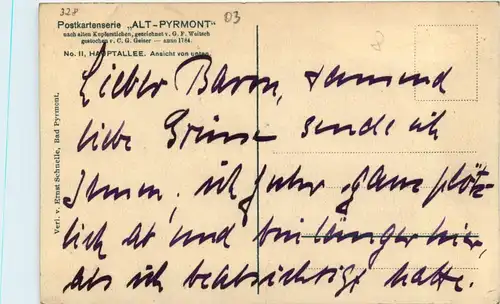 328
03
Postkartenserie „ALT-PYRMONT"
nach alten Kupferstichen, gezeichnet v. G. F. Weitsch
gestochen v. C. G. Geiser — anno 1784.
No. 11, HAUPTALLEE. Ansicht von unten.
Verl. v. Ernst Schnelle, Bad Pyrmont.
Lieber Baron, tausend
liebe Grüsse sende ich
Ihnen, ich fuhr ganz plötz-
lich ab und bin länger hier,
als ich beabsichtigt hatte.